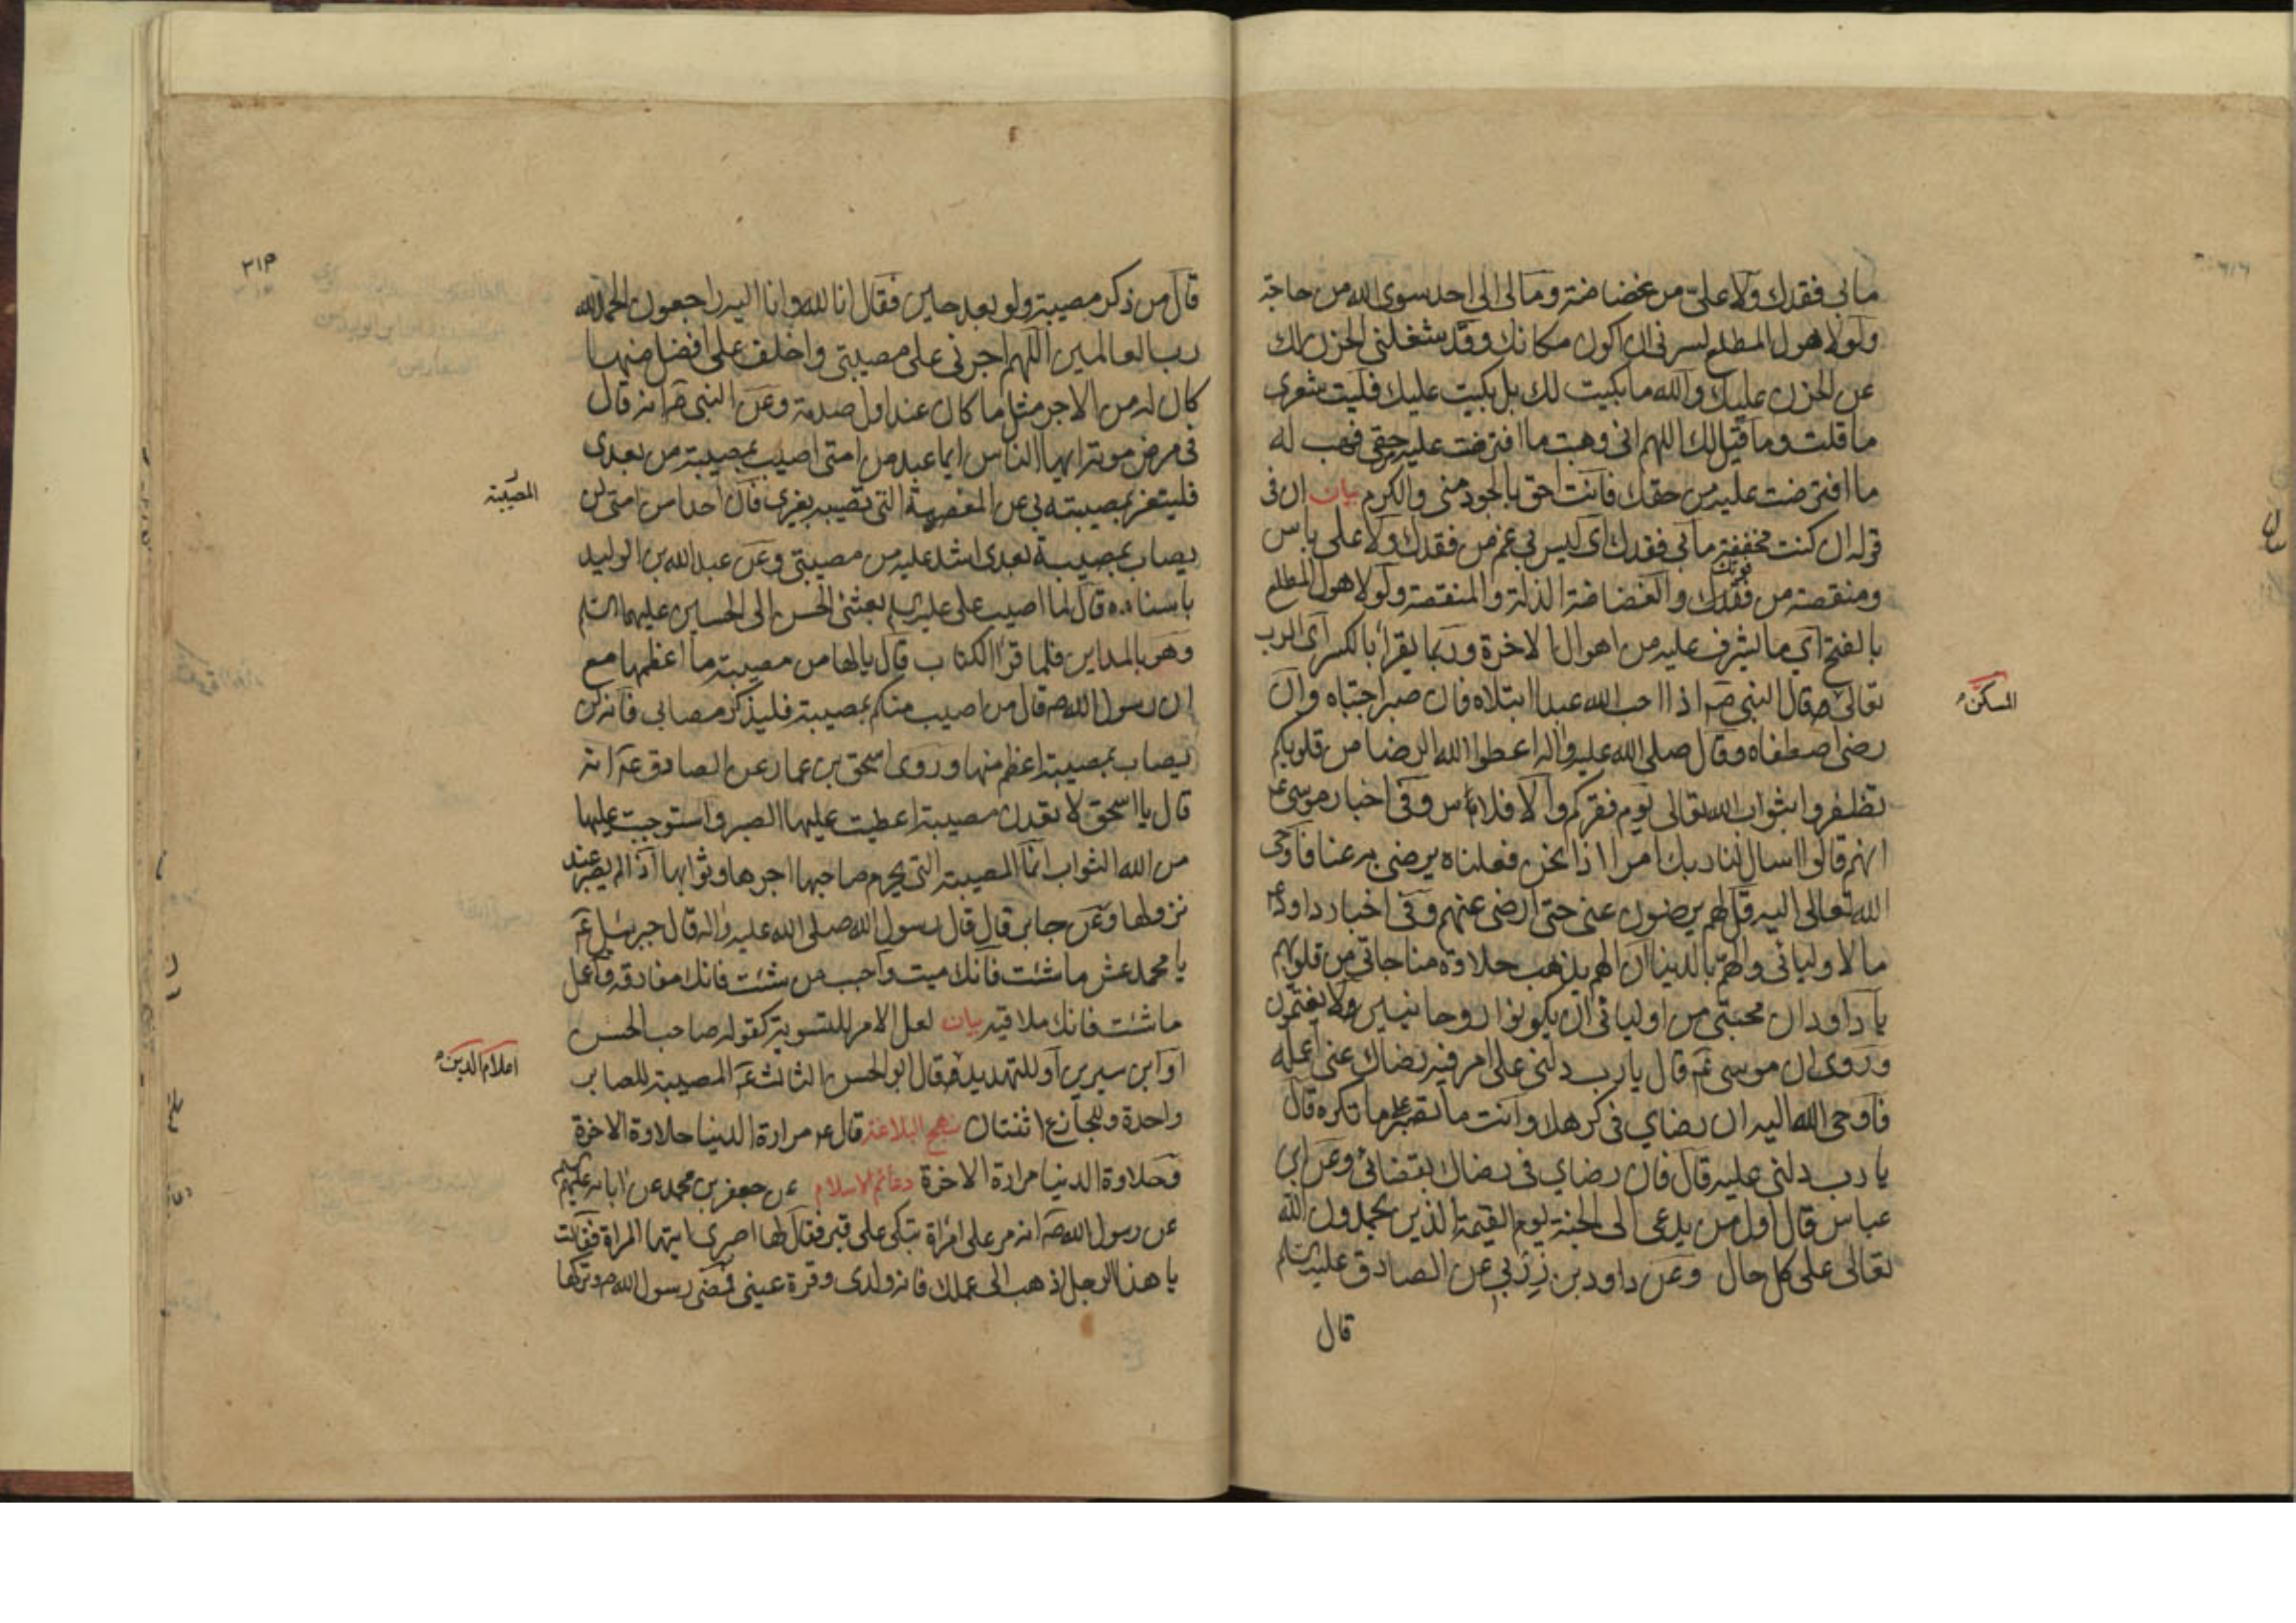 مابى فقدك ولا علىّ من غضاضة وما لى الى احد سوى الله من حاجة
ولولا هول المطلع لسرنى ان اكون مكانك وقد شغلنى الحزن لك
عن الحزن عليك والله ما بكيت لك بل بكيت عليك فليت شعرى
ما قلت وما قيل لك اللهم انى وهبت ما افترضت عليه من حقى فهب له
ما افترضت عليه من حقك فانت احق بالجود منى والكرم بيان ان فى
قوله ان كنت مخففة مابى فقدك اى ليس بى غم من فقدك ولا على باس
ومنقصة من فقدك والغضاضة الذلة والمنقصة ولولا هول المطلع
بالفتح اى ما يشرف عليه من اهوال الاخرة وربما يقرأ بالكسر اى الرب
تعالى
المسكن
قال النبى ص اذا احب الله عبدا ابتلاه فان صبر اجتباه وان
رضى اصطفاه وقال صلى الله عليه واله اعطوا الله الرضا من قلوبكم
تظفروا بثواب الله تعالى يوم فقركم والافلاس وفى اخبار موسى ع
انهم قالوا اسال لنا ربك امرا اذا نحن فعلناه يرضى به عنا فاوحى
الله تعالى اليه قل لهم يرضون عنى حتى ارضى عنهم وفى اخبار داود ع
ما لاوليائى والهم بالدنيا ان الهم يذهب حلاوة مناجاتى من قلوبهم
يا داود ان محبتى من اوليائى ان يكونوا روحانيين ولا يغتمون
وروى ان موسى ع قال يا رب دلنى على امر فيه رضاك عنى اعمله
فاوحى الله اليه ان رضاى فى كرهك وانت ما تصبر على ما تكره قال
يا رب دلنى عليه قال فان رضاى فى رضاك بقضائى وعن ابن
عباس قال اول من يدعى الى الجنة يوم القيمة الذين يحمدون الله
تعالى على كل حال وعن داود بن زربى عن الصادق عليه السلم
قال
٢١٣
قال من ذكر مصيبته ولو بعد حين فقال انا لله وانا اليه راجعون الحمد لله
رب العالمين اللهم اجرنى على مصيبتى واخلف على افضل منها
كان له من الاجر مثل ما كان عند اول صدمة وعن النبى ص انه قال
فى مرض موته ايها الناس ايما عبد من امتى اصيب بمصيبة من بعدى
فليتعز بمصيبته بى عن المصيبة التى تصيبه بغيرى فان احدا من امتى لن
المصيبة
يصاب بمصيبة بعدى اشد عليه من مصيبتى وعن عبد الله بن الوليد
باسناده قال لما اصيب على عليه السلم بعثنى الحسن الى الحسين عليهما السلم
وهو بالمداين فلما قرا الكتاب قال يا لها من مصيبة ما اعظمها مع
ان رسول الله ص قال من اصيب منكم بمصيبة فليذكر مصابى فانه لن
يصاب بمصيبة اعظم منها وروى اسحق بن عمار عن الصادق ع انه
قال يا اسحق لا تعدن مصيبة اعطيت عليها الصبر واستوجبت عليها
من الله الثواب انما المصيبة التى يحرم صاحبها اجرها وثوابها اذا لم يصبر عند
نزولها وعن جابر قال قال رسول الله صلى الله عليه واله قال جبرئيل ع
يا محمد عش ما شئت فانك ميت واحب من شئت فانك مفارقه واعمل
ما شئت فانك ملاقيه بيان لعل الامر للتسوية كقوله صاحب الحسن
او ابن سيرين او للتهديد
اعلام الدين
قال ابو الحسن الثالث ع المصيبة للصابر
واحدة وللجازع اثنتان نهج البلاغة قال ع مرارة الدنيا حلاوة الاخرة
وحلاوة الدنيا مرارة الاخرة دعائم الاسلام عن جعفر بن محمد عن ابائه عليهم السلم
عن رسول الله ص انه مر على امراة تبكى على قبر فقال لها اصبرى ايتها المراة فقالت
يا هذا الرجل اذهب الى عملك فانه ولدى وقرة عينى فمضى رسول الله ص وتركها